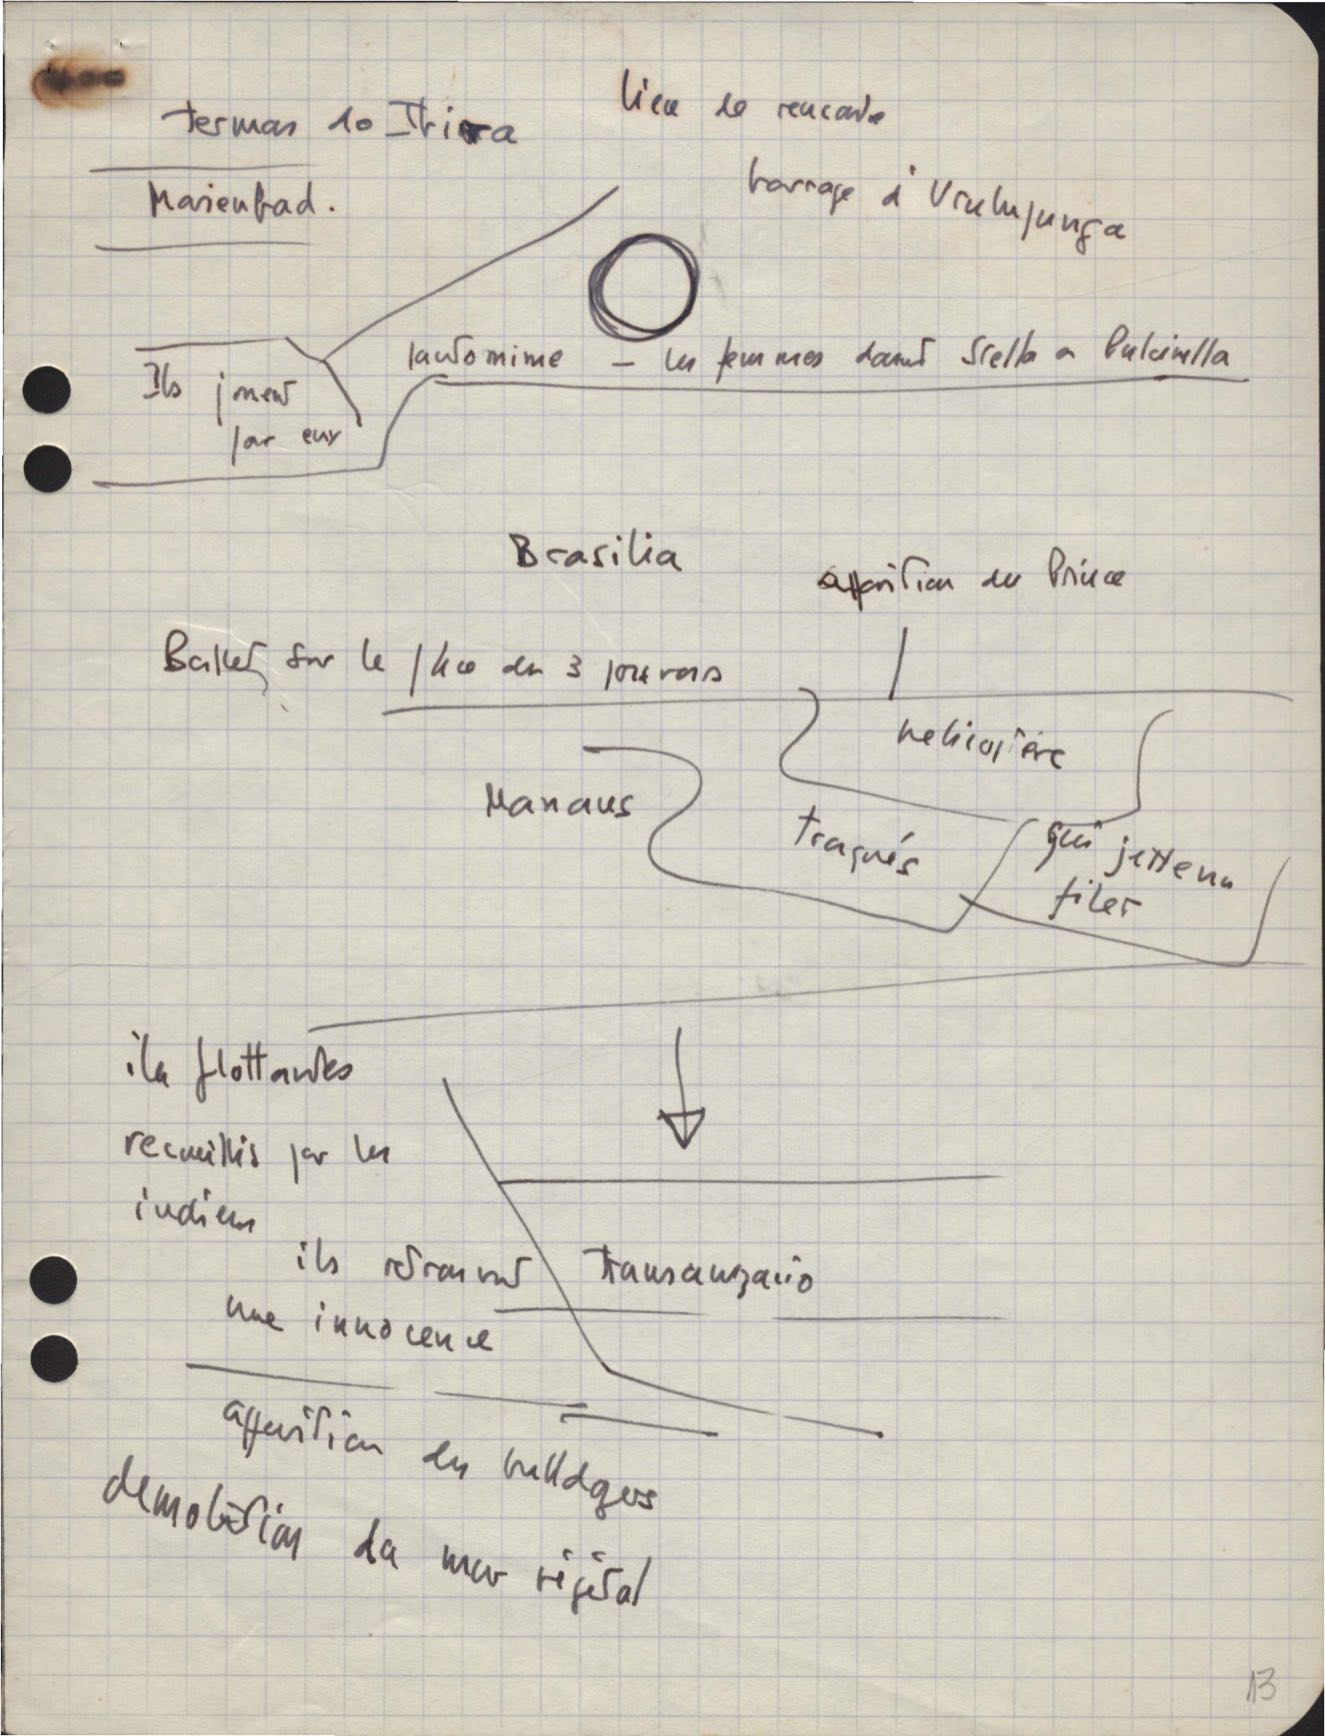 lieu de rencontre
termas do Ibira
barrage d'Urubupunga
Marienbad.
pantomime – les femmes dansent Stella a Pulcinella
Ils jouent
par eux
Brasilia
apparition du Prince
Ballet sur la place des 3 pouvoirs
helicoptère
Manaus
traqués
qui jettent un
filet
iles flottantes
recueillis par les
indiens
ils retrouvent
Transamazonio
une innocence
apparition des bulldozers
demolition du mur végétal
13